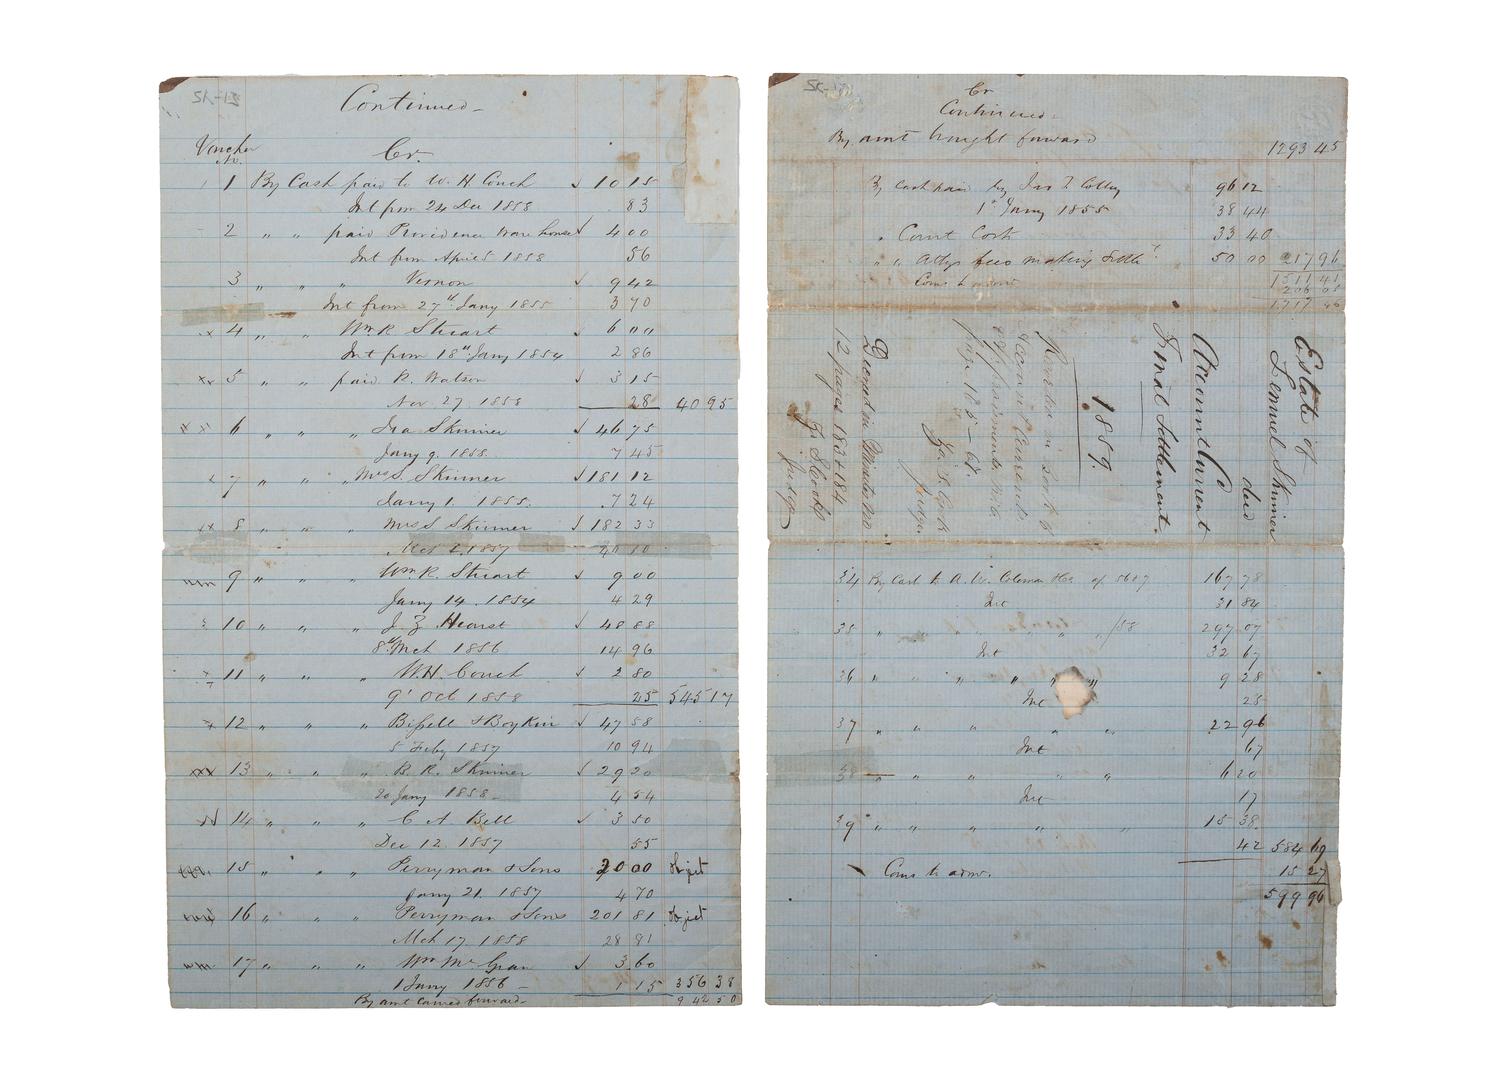 Continued
Voucher No. Cr.
1 By Cash paid to W. H. Couch √ 10 15
Int from 24 Dec 1858 83
2 " " paid Providence Ware house √ 4 00
Int from April 5 1858 56
3 " " " Vernon √ 9 42
Int from 27th Jany 1855 3 70
4 " " " Wm R Stuart √ 6 00
Int from 18th Jany 1854 2 86
5 " " paid R. Watson √ 3 15
Nov. 27. 1858 28 40 95
6 " " " Ira Skinner √ 46 75
Jany 9. 1858 7 45
7 " " " Mrs S. Skinner √ 181 12
Jany 1. 1855. 7 24
8 " " " Mrs S Skinner √ 182 33
Mch 2. 1857
9 " " " Wm. R. Stuart √ 9 00
Jany 14. 1854 4 29
10 " " " J. Z Hearst √ 48 88
8th Mch 1856 14 96
11 " " " W. H. Couch √ 2 80
9th Oct 1858 25 545 17
12 " " " Bissell & Boykin √ 47 58
5 Feby 1857 10 94
13 " " " B. R. Skinner √ 29 20
20 Jany 1858 4 54
14 " " " C A Bell √ 3 50
Dec 12. 1857 55
15 " " " Perryman & Sons 20 00 object
Jany 21. 1857 4 70
16 " " " Perryman & Sons 201 81 object
Mch 17. 1858 28 81
17 " " " Wm Mc √ 3 60
1 Jany 1856 1 15 356 38
By amt carried forward 942 50
Cr
Continued
By amt brought forward 1293 45
By cash paid by Jas T Colley 96 12
1st Jany 1855 38 44
" Court Costs 33 40
" " Attys fees making settlt 50 00 217 96
Coms to admr 1511 41
206 05
1717 46
Estate of
Lemuel Skinner
decd
Account Current
Final Settlement.
1859
Recorded in Book 6
page 165-67
Jas S. Cook
Judge
Decree in Minutes No
12 pages 183 & 184
Judge
34 By Cash to A. W. Coleman 167 78
Int 31 84
35 " " " " " " /58 297 07
Int 32 67
36 " " " " " 9 28
Int 25
37 " " " " " 22 96
Int 67
38 " " " " 6 20
Int 17
39 " " " " " 15 38
42 584 69
Coms to admr. 15 27
599 96